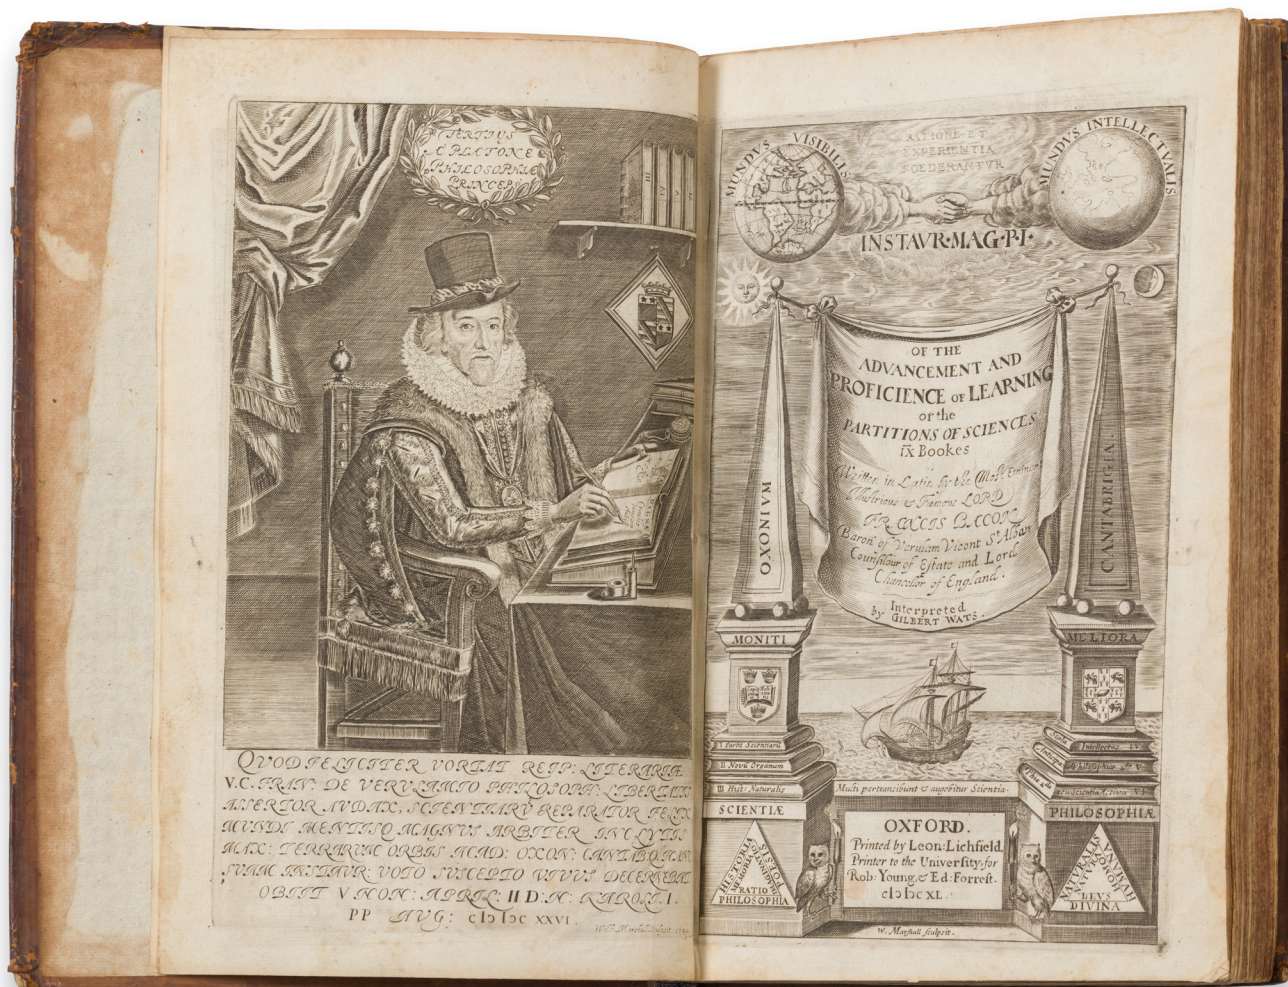 TERTIVS
A PLATONE
PHILOSOPHIÆ
PRINCEPS
III
IV
V
QVOD FELICITER VORTAT REIP: LITERARIÆ
V.C. FRAN: DE VERVLAMIO PHILOSOPH: LIBERTATIS
ASSERTOR AVDAX, SCIENTIARV REPARATOR FELIX
MVNDI MENTISQ MAGNVS ARBITER INCLYTIS
MAX: TERRARVM ORBIS ACAD: OXON: CANTABQ HANC
SVAM INSTAVR: VOTO SVSCEPTO VIVVS DECERNEBAT
OBIIT V NON: APRIL: II D: N: KAROLI. I.
PP AVG: cIↄ Iↄc XXVI.
Will: Marshall sculpsit.
MVNDVS VISIBILIS
RATIONE ET
EXPERIENTIA
FOEDERANTVR
MVNDVS INTELLECTVALIS
INSTAVR·MAG·P·I·
OF THE
ADVANCEMENT AND
PROFICIENCE OF LEARNING
or the
PARTITIONS OF SCIENCES
IX Bookes
Written in Latin by the Most Eminent
Illustrious & Famous LORD
FRANCIS BACON
Baron of Verulam Vicont St Alban
Counsilour of Estate and Lord
Chancellor of England.
Interpreted
by GILBERT WATS.
OXONIVM
CANTABRIGIA
MONITI
MELIORA
I Partit Scientiarū
II Novū Organum
III Hist: Naturalis
Scala
Intellectus IV
Philosophiæ 2dæ V
Multi pertransibunt & augebitur Scientia
SCIENTIÆ
PHILOSOPHIÆ
HISTORIA
MEMORIA
POESIS
RATIO
PHILOSOPHIA
OXFORD.
Printed by Leon: Lichfield,
Printer to the University, for
Rob: Young, & Ed: Forrest.
cIↄ Iↄc XL.
NATURALIS
NATURA
HUMANA
HOMO
DEVS
DIVINA
W. Marshall sculpsit.